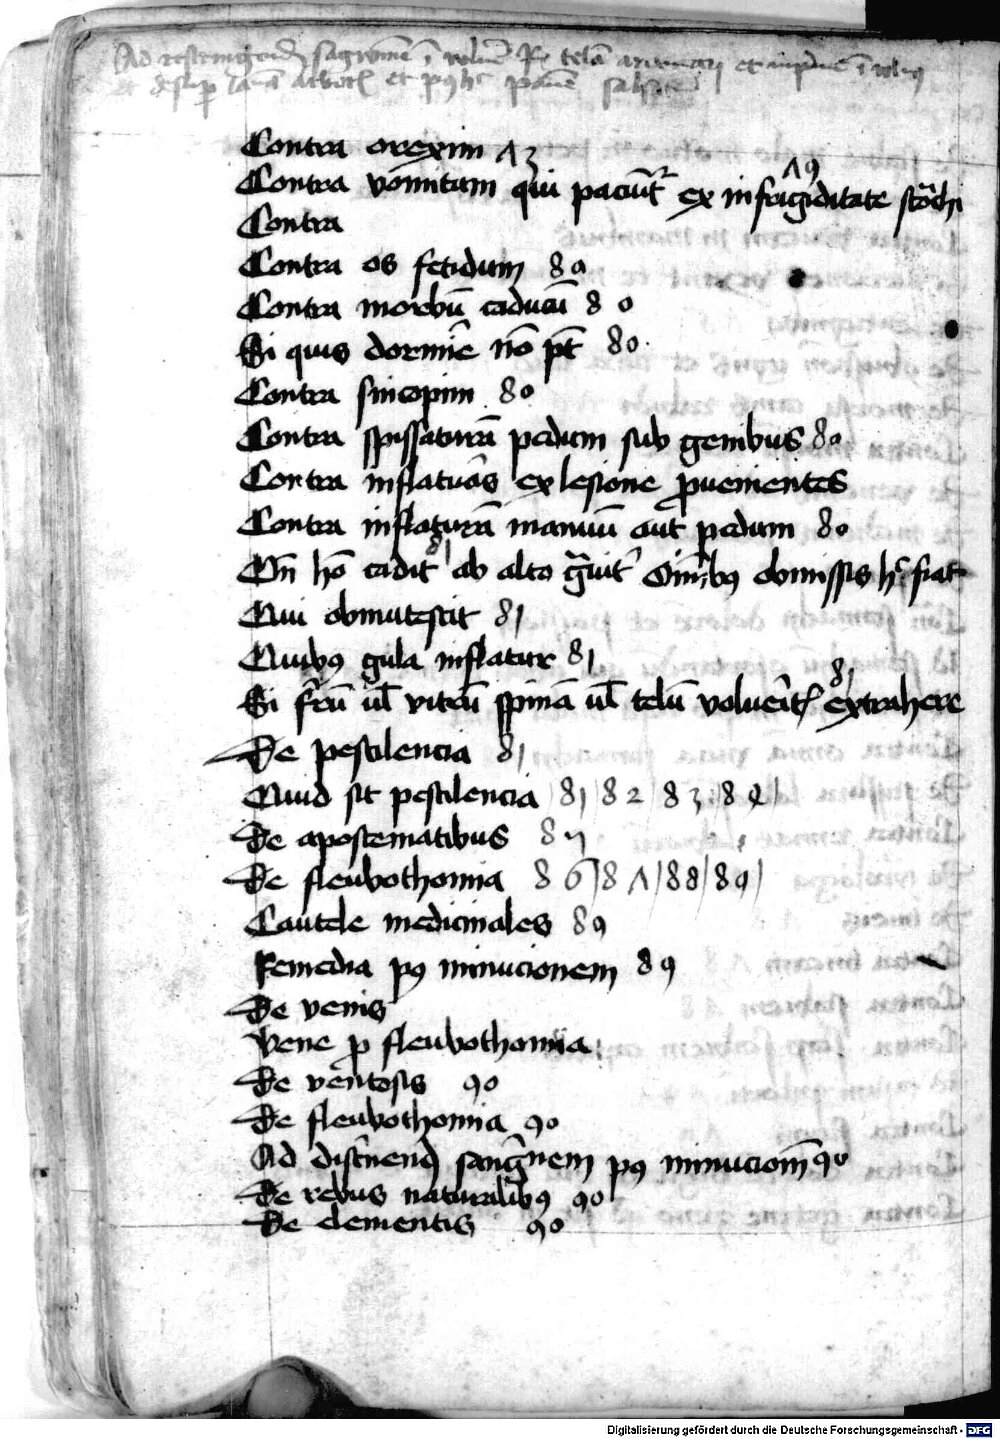 Ad restringend sagwinē ī vulnē telā aranearū et īpone ī vulnus
et desup et
Contra orexim 73
Contra vomitum qui paciūt͛ ex infrigiditate stōchi 79
Contra
Contra os fetidum 80
Contra morbū caducū 80
Si quis dormīe nō pt̄ 80
Contra sincopim 80
Contra spissaturā pedum sub genibus 80
Contra inflatuās ex lesione ꝓuenientes
Contra inflaturā manuū aut pedum 80
Qn̄ hō cadit ab alto gͣuit͛ Oīnibꝰ obmissis hͨ fiat 81
Qui obmutescit 81
Quibꝰ gula inflatur 81
Si frū ul̄ vitrū spinā ul̄ telū voluerit extrahere 81
De pestilencia 81
Quid sit pestilencia 81 / 82 / 83 / 84 /
De apostematibus 85
De fleubothomia 86 / 87 / 88 / 89 /
Cautele medicinales 89
Remedia pꝰ minucionem 89
De venis
Vene ꝓ fleubothomia
De ventosis 90
De fleubothomia 90
Ad discͥnend sangͥnem pꝰ minucioem̄ 90
De rebus naturalibꝰ 90
De elementis 90
Digitalisierung gefördert durch die Deutsche Forschungsgemeinschaft - DFG